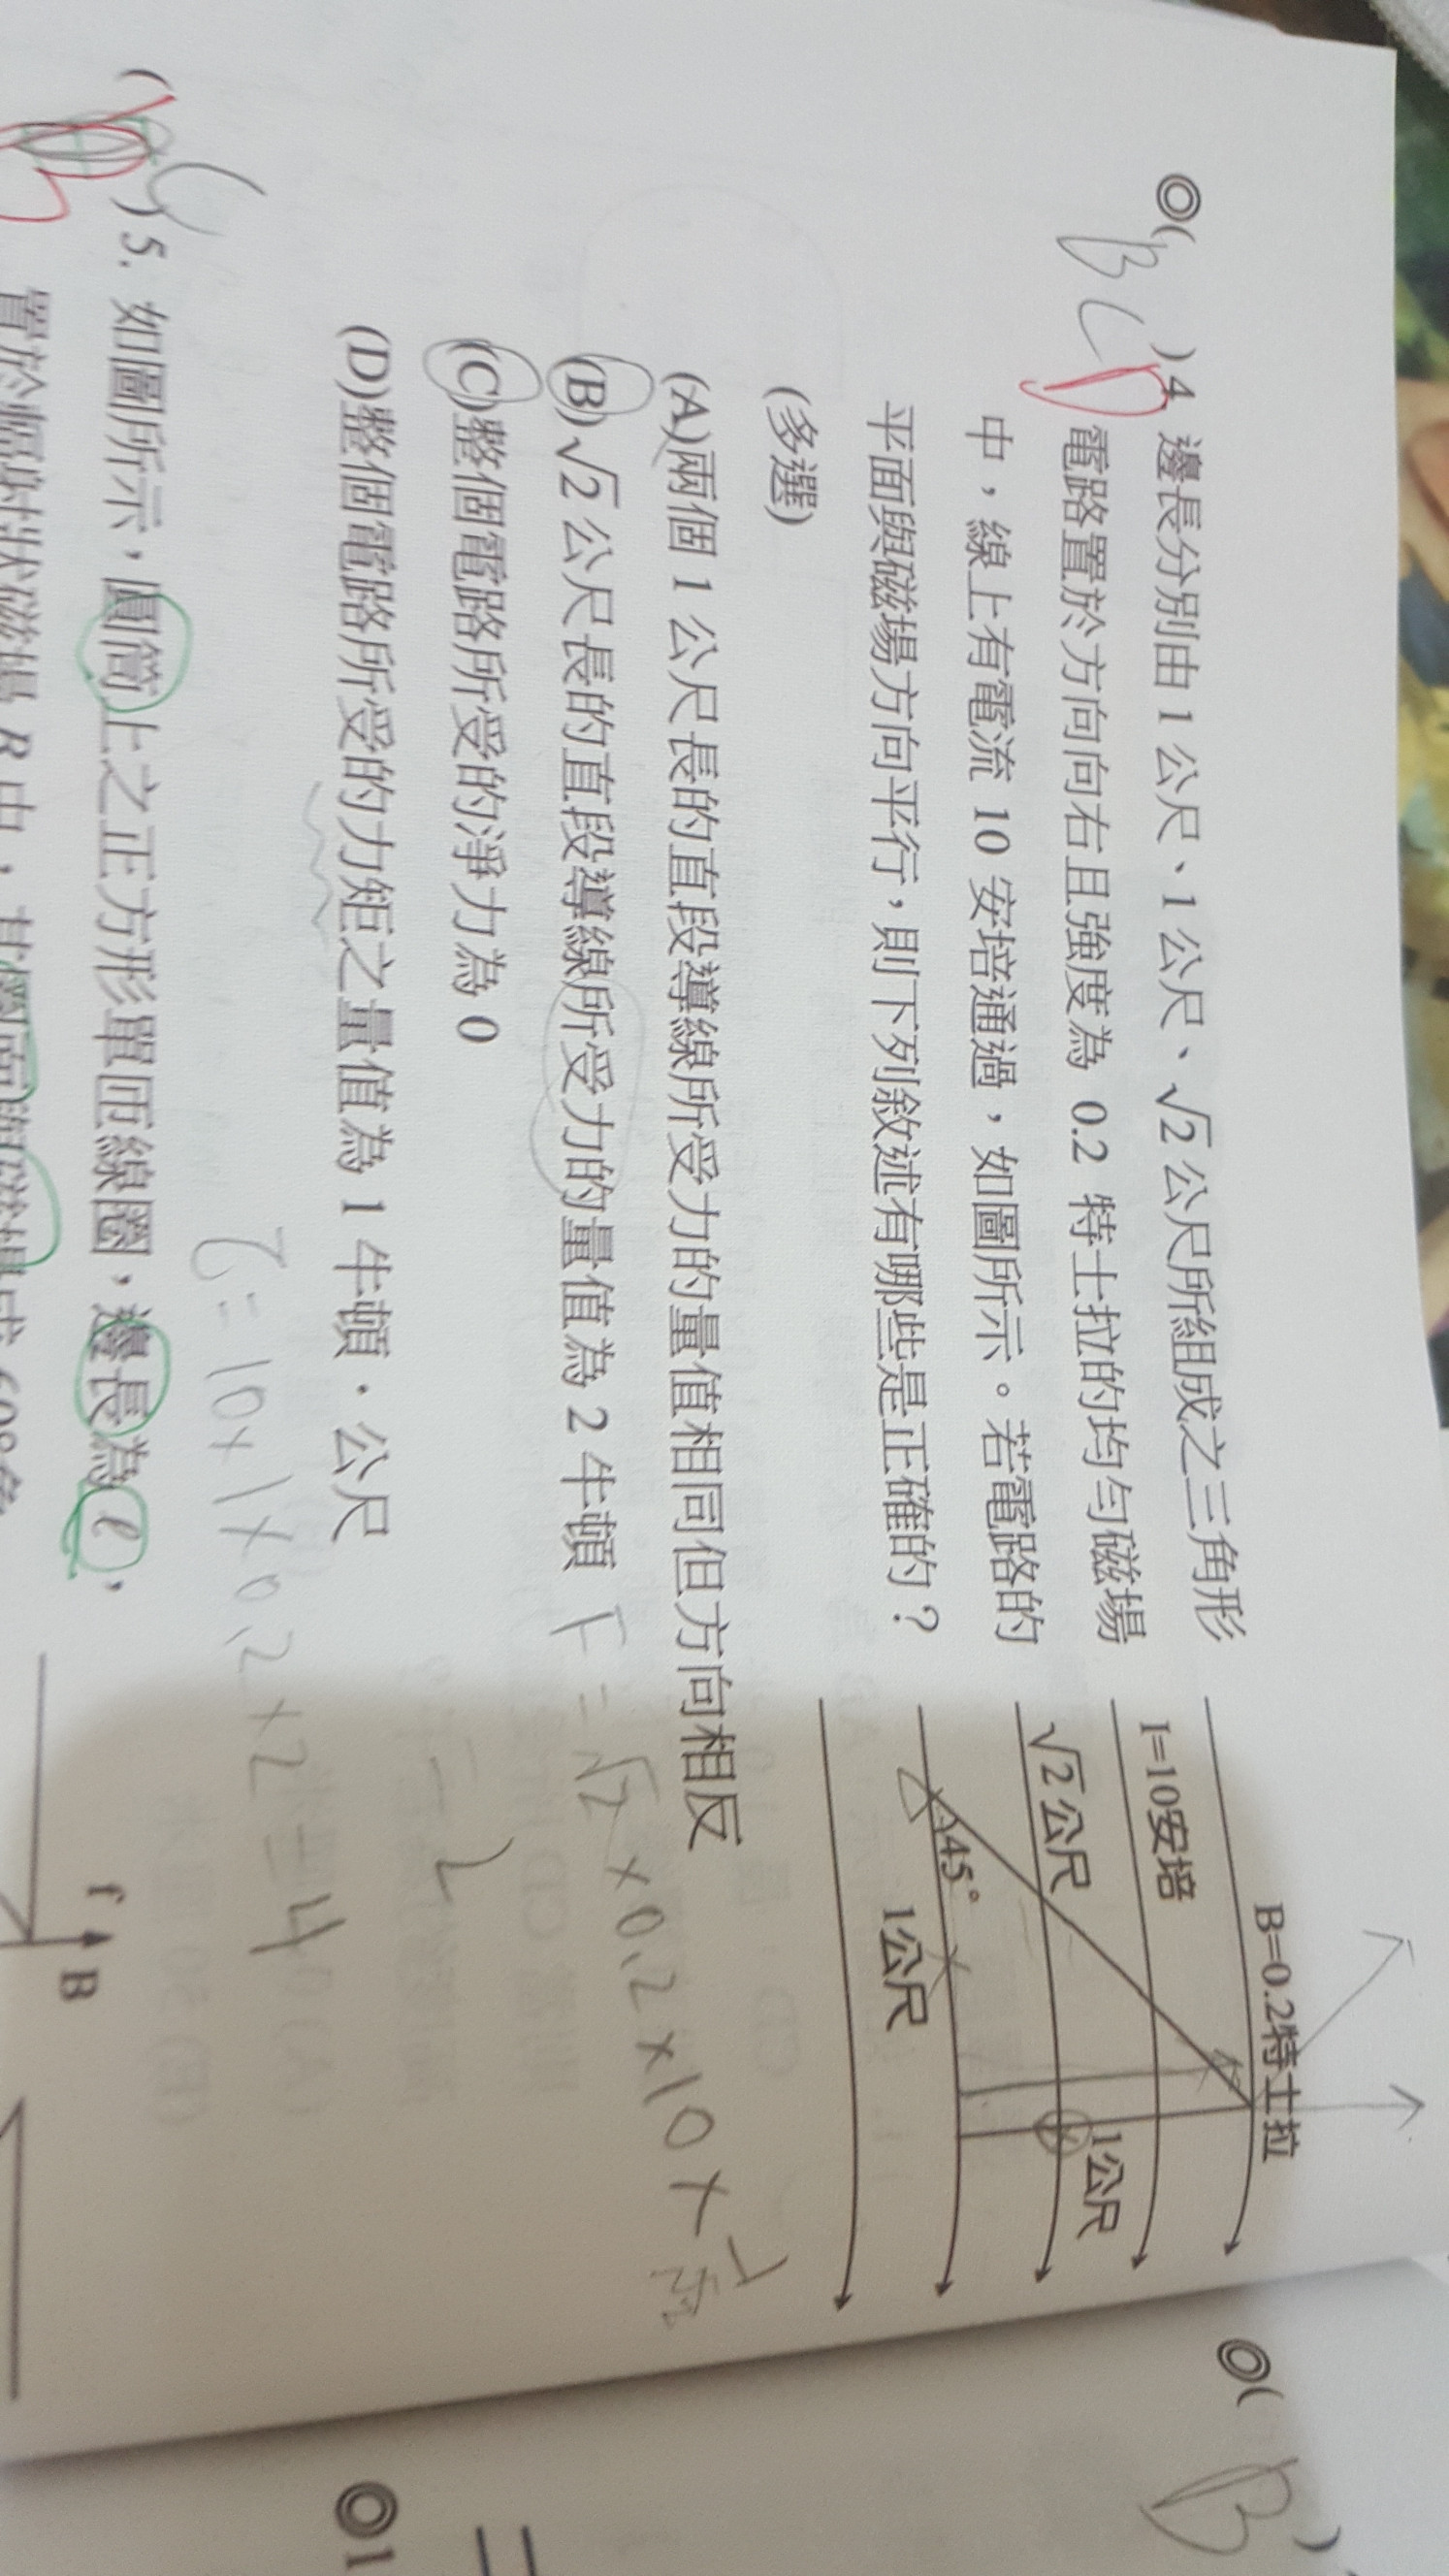 ◎( BCD )4. 邊長分別由 1 公尺、1 公尺、√2 公尺所組成之三角形
電路置於方向向右且強度為 0.2 特士拉的均勻磁場
中，線上有電流 10 安培通過，如圖所示。若電路的
平面與磁場方向平行，則下列敘述有哪些是正確的？
(多選)
B=0.2特士拉
I=10安培
√2 公尺
1公尺
45°
1公尺
(A)兩個 1 公尺長的直段導線所受力的量值相同但方向相反
(B)√2 公尺長的直段導線所受力的量值為 2 牛頓
F=√2×0.2×10×1/√2
=2
(C)整個電路所受的淨力為 0
(D)整個電路所受的力矩之量值為 1 牛頓．公尺
τ=10×1×0.2×2=4
( B )5. 如圖所示，圓筒上之正方形單匝線圈，邊長為 ℓ，
置於輻射狀磁場 B 中，其
f
B
◎( B )
◎1